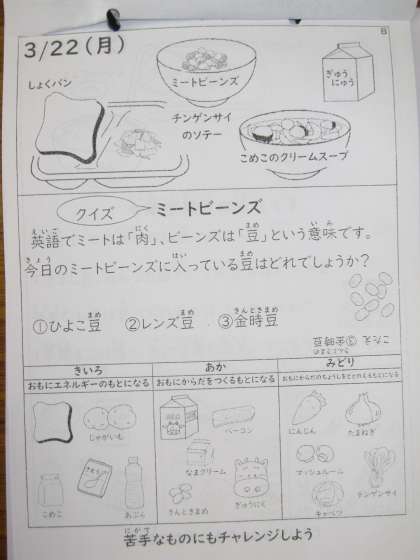 3/22(月)
B
しょくパン
ミートビーンズ
ぎゅう
にゅう
チンゲンサイ
のソテー
こめこのクリームスープ
クイズ
ミートビーンズ
英語でミートは「肉」、ビーンズは「豆」という意味です。
今日のミートビーンズに入っている豆はどれでしょうか?
①ひよこ豆 ②レンズ豆 ③金時豆
こたえ ③金時豆
きいろ
おもにエネルギーのもとになる
じゃがいも
こめこ
さとう
あぶら
あか
おもにからだをつくるもとになる
ベーコン
なまクリーム
きんときまめ
ぎゅうにく
みどり
おもにからだのちょうしをととのえるもとになる
にんじん
たまねぎ
マッシュルーム
チンゲンサイ
キャベツ
苦手なものにもチャレンジしよう